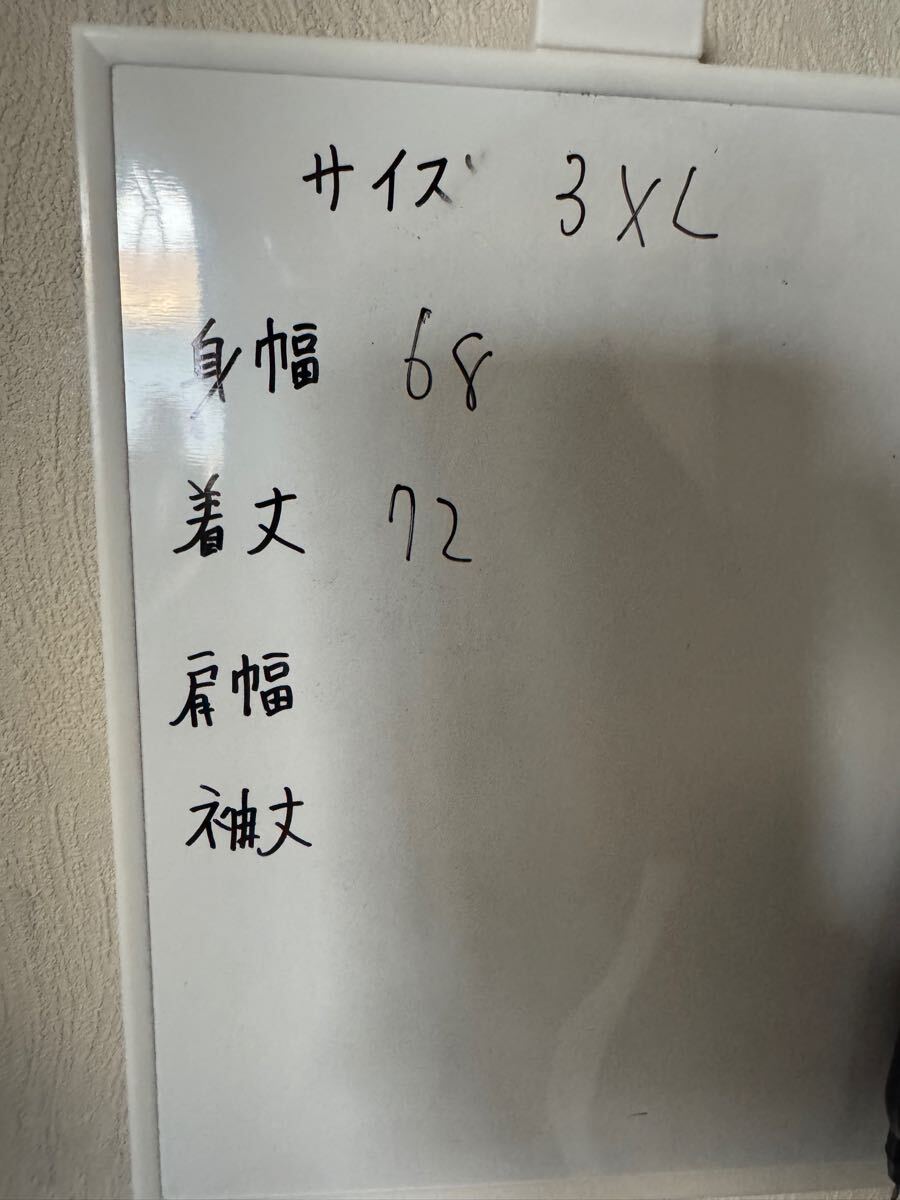 サイズ 3XL
身幅 68
着丈 72
肩幅
袖丈